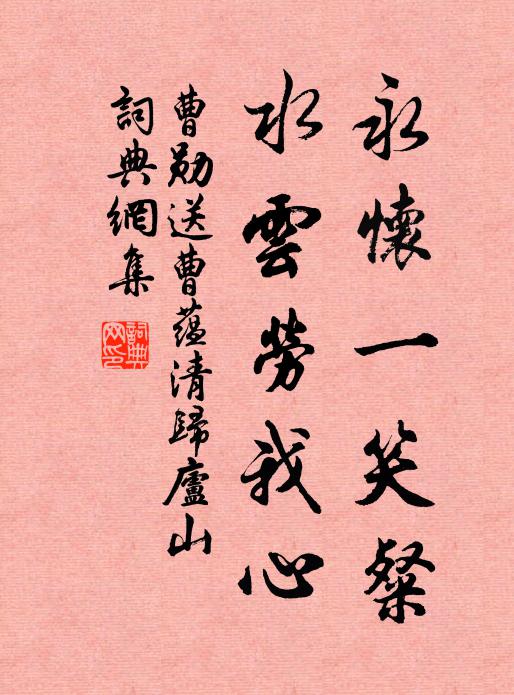 永懷一笑粲
水雲勞我心
曹勛送曹蘊清歸廬山
詞典網集
詞典
网印